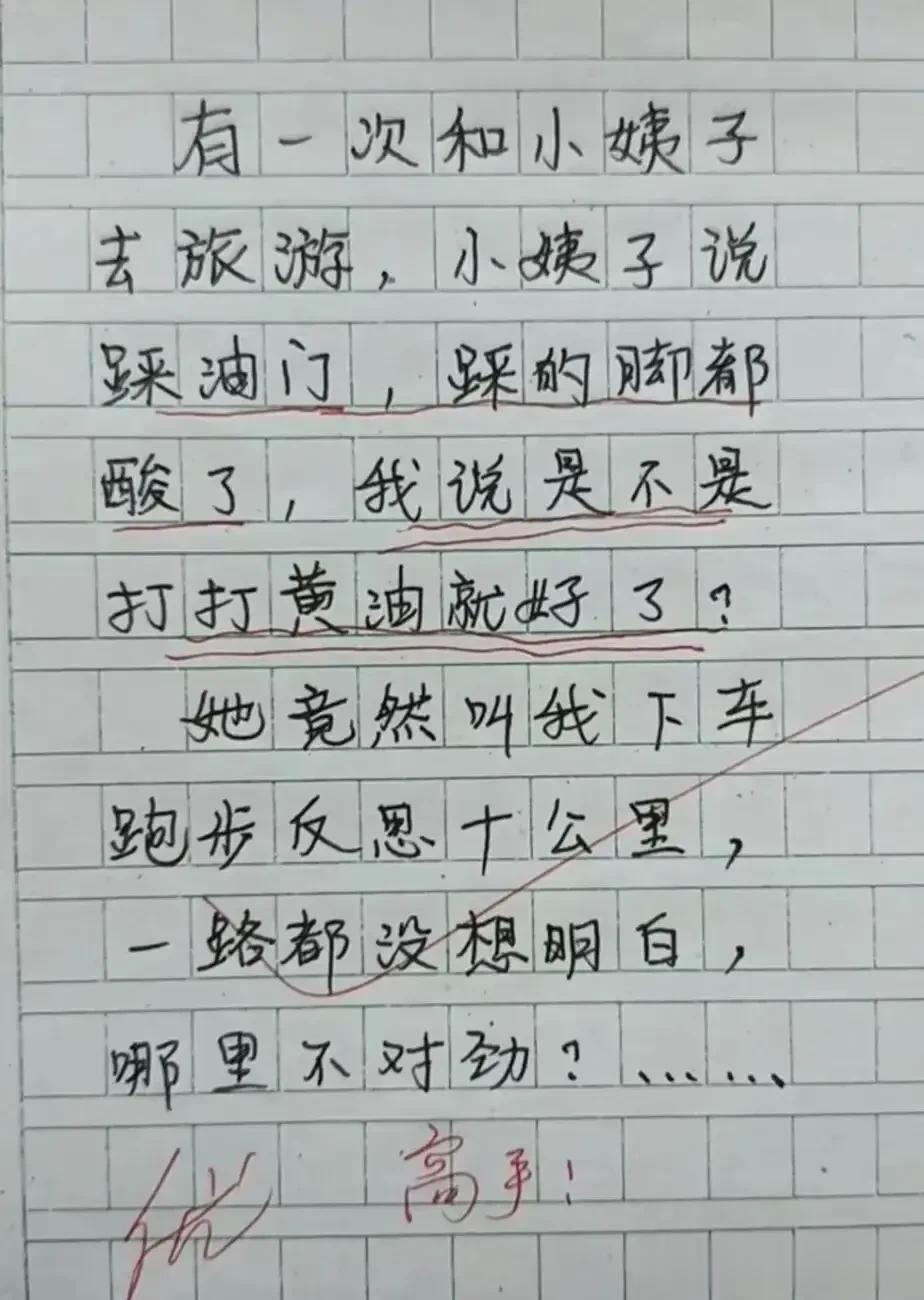 有一次和小姨子
去旅游,小姨子说
踩油门,踩的脚都
酸了,我说是不是
打打黄油就好了?
她竟然叫我下车
跑步反思十公里,
一路都没想明白,
哪里不对劲?……
优 高手!